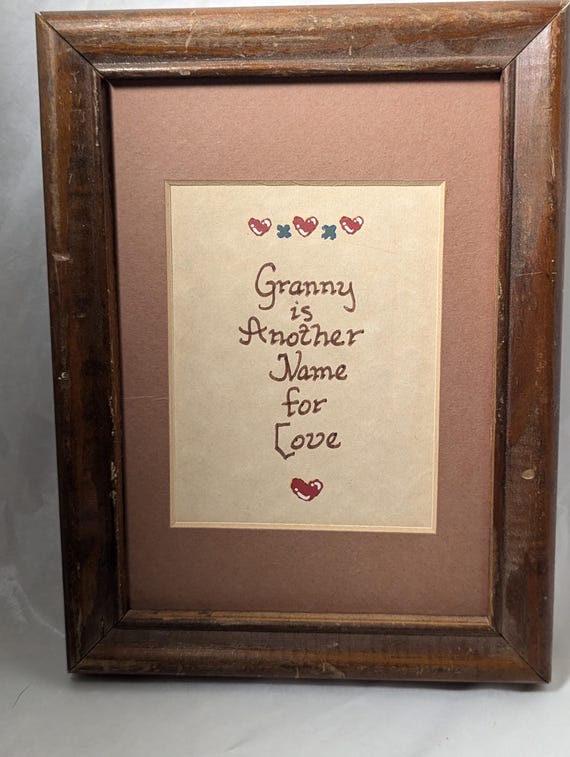 Granny
is
Another
Name
for
Love